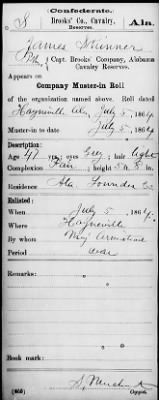 Confederate.
S Brooks' Co., Cavalry, Ala.
Reserves.
James Skinner
Pvt, Capt. Brooks' Company, Alabama
Cavalry Reserves.
Appears on
Company Muster-in Roll
of the organization named above. Roll dated
Hayneville Ala, July 5, 1864.
Muster-in to date July 5, 1864.
Description:
Age 47 yrs; eyes Grey; hair light
Complexion Fair; height 5 ft. 8 in.
Residence Ala Lowndes Co
Enlisted:
When July 5, 1864.
Where Hayneville
By whom Maj Armistead
Period war
Remarks:
Book mark:
(663) Copyist.